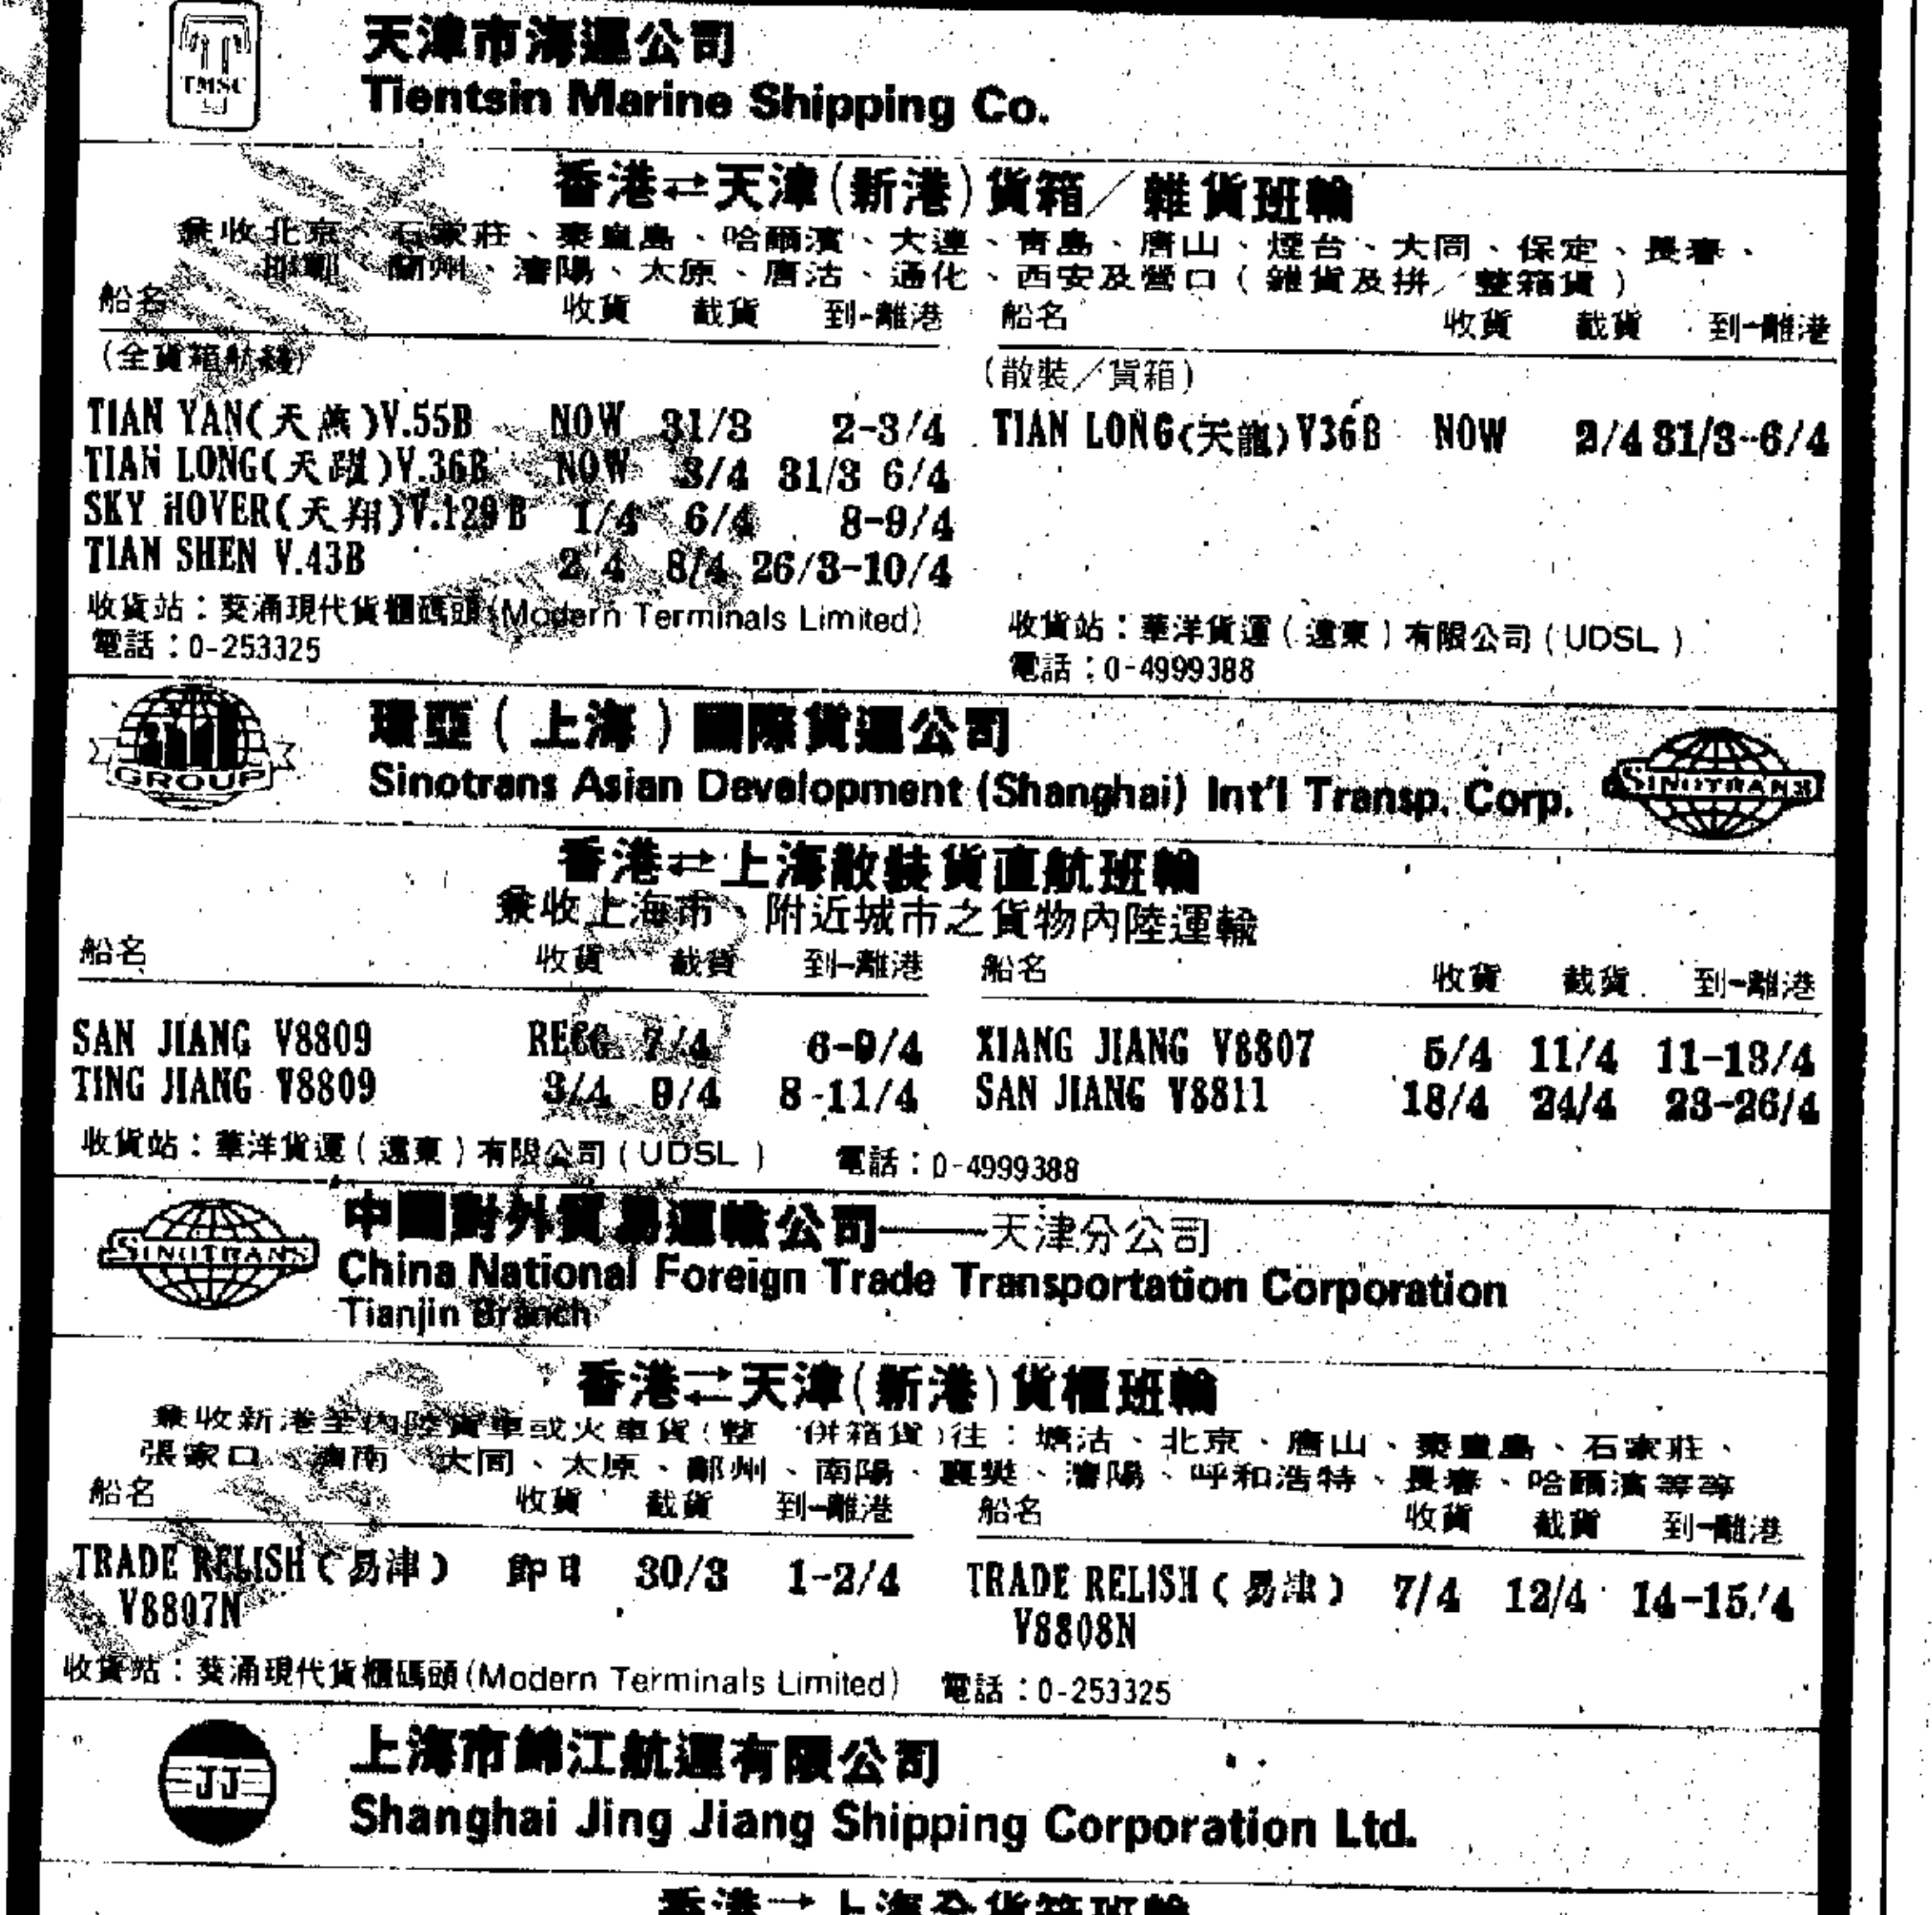 TMSC
天津市海運公司
Tientsin Marine Shipping Co.
香港⇄天津(新港)貨箱／雜貨班輪
兼收北京、石家莊、秦皇島、哈爾濱、大連、青島、唐山、煙台、大同、保定、長春、
邯鄲、蘭州、瀋陽、太原、唐沽、通化、西安及營口(雜貨及拼／整箱貨)
船名 收貨 截貨 到-離港
(全貨箱航綫)
TIAN YAN(天燕)V.55B NOW 31/3 2-3/4
TIAN LONG(天龍)V.36B NOW 3/4 31/3 6/4
SKY HOVER(天翔)V.129B 1/4 6/4 8-9/4
TIAN SHEN V.43B 2/4 8/4 26/3-10/4
收貨站：葵涌現代貨櫃碼頭(Modern Terminals Limited)
電話：0-253325
船名 收貨 截貨 到-離港
(散裝／貨箱)
TIAN LONG(天龍)V36B NOW 2/4 31/3-6/4
收貨站：華洋貨運(遠東)有限公司(UDSL)
電話：0-4999388
GROUP
環亞(上海)國際貨運公司
Sinotrans Asian Development (Shanghai) Int'l Transp. Corp.
SINOTRANS
香港⇄上海散裝貨直航班輪
兼收上海市、附近城市之貨物內陸運輸
船名 收貨 截貨 到-離港
SAN JIANG V8809 RECG 7/4 6-9/4
TING JIANG V8809 3/4 9/4 8-11/4
船名 收貨 截貨 到-離港
XIANG JIANG V8807 5/4 11/4 11-13/4
SAN JIANG V8811 18/4 24/4 23-26/4
收貨站：華洋貨運(遠東)有限公司(UDSL) 電話：0-4999388
SINOTRANS
中國對外貿易運輸公司——天津分公司
China National Foreign Trade Transportation Corporation
Tianjin Branch
香港⇄天津(新港)貨櫃班輪
兼收新港至內陸貨車或火車貨(整 併箱貨)往：塘沽、北京、唐山、秦皇島、石家莊、
張家口、濟南、大同、太原、鄭州、南陽、襄樊、瀋陽、呼和浩特、長春、哈爾濱等等
船名 收貨 截貨 到-離港
TRADE RELISH(易津) 即日 30/3 1-2/4
V8807N
船名 收貨 截貨 到-離港
TRADE RELISH(易津) 7/4 12/4 14-15/4
V8808N
收貨站：葵涌現代貨櫃碼頭(Modern Terminals Limited) 電話：0-253325
JJ
上海市錦江航運有限公司
Shanghai Jing Jiang Shipping Corporation Ltd.
香港⇄上海全貨箱班輪